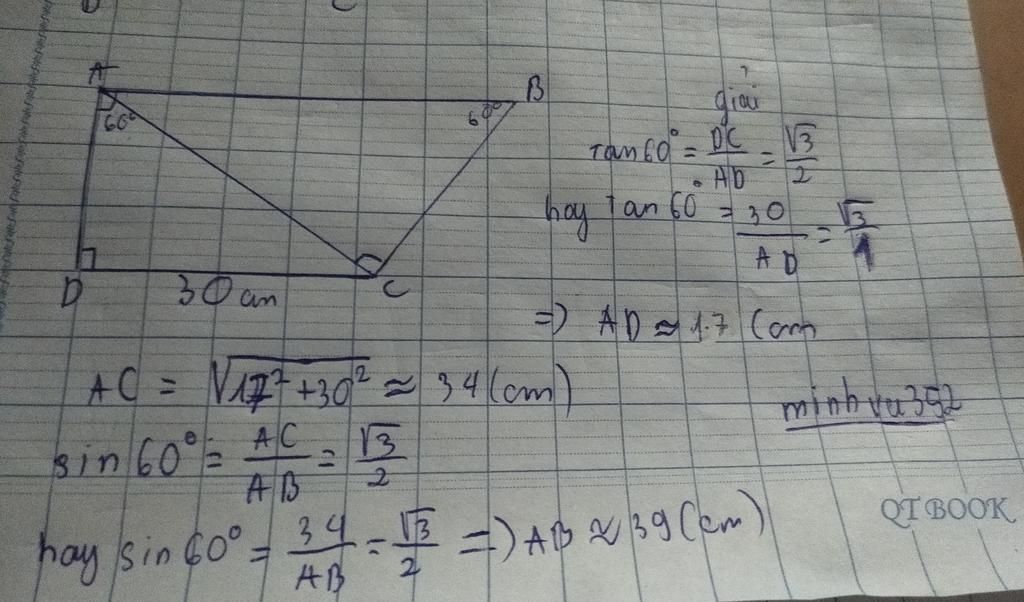 A
B
60°
60°
D
30 cm
C
giải
Tan60° = DC/AD = √3/2
hay Tan60° = 30/AD = √3/1
=) AD ≈ 17 (cm
AC = √17² + 30² ≈ 34 (cm)
minhvu352
sin60° = AC/AB = √3/2
hay sin60° = 34/AB = √3/2 =) AB ≈ 39 (cm)
QTBOOK